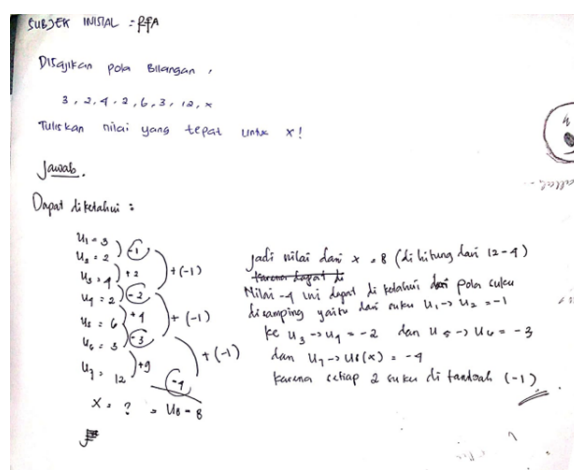 SUBJEK INISIAL : RFA
Disajikan pola Bilangan,
3, 2, 4, 2, 6, 3, 12, x
Tuliskan nilai yang tepat untuk x!
Jawab.
Dapat diketahui :
U1 = 3
U2 = 2
-1
U3 = 4
+2
+(-1)
U4 = 2
-2
U5 = 6
+4
+(-1)
U6 = 3
-3
U7 = 12
+9
+(-1)
-4
x = ? = U8 = 8
jadi nilai dari x = 8 (di hitung dari 12-4)
karena dapat di
Nilai -4 ini dapat di ketahui dari pola suku
disamping yaitu dari suku U1 → U2 = -1
ke U3 → U4 = -2 dan U5 → U6 = -3
dan U7 → U8(x) = -4
karena setiap 2 suku di tambah (-1)